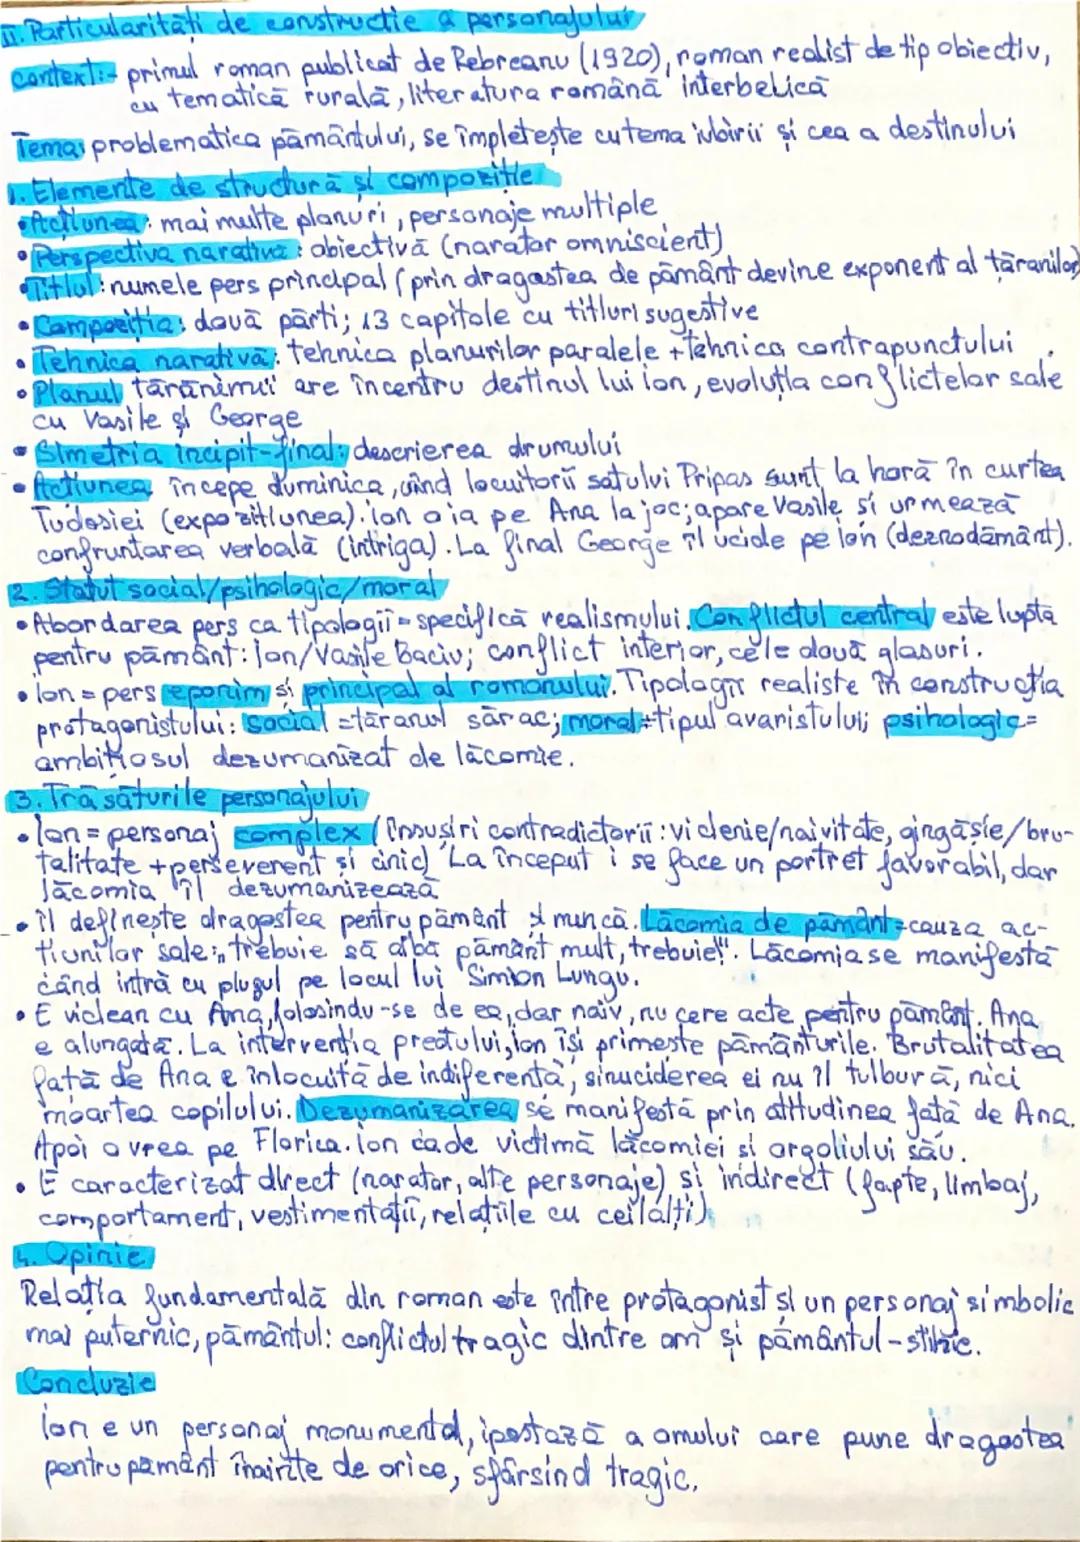 II. Particularități de construcție a personajului
Context:- primul roman publicat de Rebreanu (1920), roman realist de tip obiectiv,
cu tematică rurală, literatura română interbelică
Tema: problematica pământului, se împletește cu tema iubirii și cea a destinului
1. Elemente de structură și compoziție
• Acțiunea: mai multe planuri, personaje multiple
• Perspectiva narativă: obiectivă (narator omniscient)
• Titlul: numele pers principal (prin dragostea de pământ devine exponent al țăranilor)
• Compoziția: două părți; 13 capitole cu titluri sugestive
• Tehnica narativă: tehnica planurilor paralele + tehnica contrapunctului
• Planul țărănimii are în centru destinul lui Ion, evoluția conflictelor sale
cu Vasile și George
• Simetria incipit-final: descrierea drumului
• Acțiunea începe duminica, când locuitorii satului Pripas sunt la horă în curtea
Tudosiei (expozițiunea). Ion o ia pe Ana la joc; apare Vasile și urmează
confruntarea verbală (intriga). La final George îl ucide pe Ion (deznodământ).
2. Statut social/psihologic/moral
• Abordarea pers ca tipologii = specifică realismului. Conflictul central este lupta
pentru pământ: Ion/Vasile Baciu; conflict interior, cele două glasuri.
• Ion = pers eponim și principal al romanului. Tipologii realiste în construcția
protagonistului: social = țăranul sărac; moral = tipul avaristului; psihologic =
ambițiosul dezumanizat de lăcomie.
3. Trăsăturile personajului
• Ion = personaj complex (însușiri contradictorii: viclenie/naivitate, gingășie/bru-
talitate + perseverent și cinic) La început i se face un portret favorabil, dar
lăcomia îl dezumanizează
• Îl definește dragostea pentru pământ și muncă. Lăcomia de pământ = cauza ac-
țiunilor sale: „trebuie să aibă pământ mult, trebuie!". Lăcomia se manifestă
când intră cu plugul pe locul lui Simion Lungu.
• E viclean cu Ana, folosindu-se de ea, dar naiv, nu cere acte pentru pământ. Ana
e alungată. La intervenția preotului, Ion își primește pământurile. Brutalitatea
față de Ana e înlocuită de indiferență, sinuciderea ei nu îl tulbură, nici
moartea copilului. Dezumanizarea se manifestă prin atitudinea față de Ana.
Apoi o vrea pe Florica. Ion cade victimă lăcomiei și orgoliului său.
• E caracterizat direct (narator, alte personaje) și indirect (fapte, limbaj,
comportament, vestimentații, relațiile cu ceilalți)
4. Opinie
Relația fundamentală din roman este între protagonist și un personaj simbolic
mai puternic, pământul: conflictul tragic dintre om și pământul-stihie.
Concluzie
Ion e un personaj monumental, ipostază a omului care pune dragostea
pentru pământ înainte de orice, sfârsind tragic.